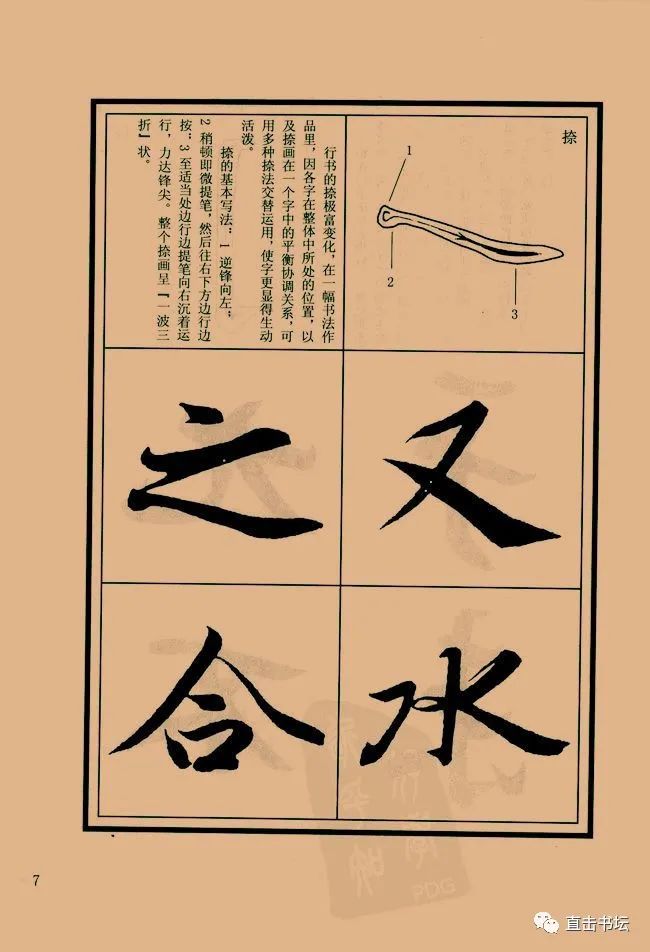 捺
1
2
3
行书的捺极富变化，在一幅书法作
品里，因各字在整体中所处的位置，以
及捺画在一个字中的平衡协调关系，可
用多种捺法交替运用，使字更显得生动
活泼。
捺的基本写法：1 逆锋向左；
2 稍顿即微提笔，然后往右下方边行边
按；3 至适当处边行边提笔向右沉着运
行，力达锋尖。整个捺画呈『一波三
折』状。
又
之
水
合
7
PDG
直击书坛